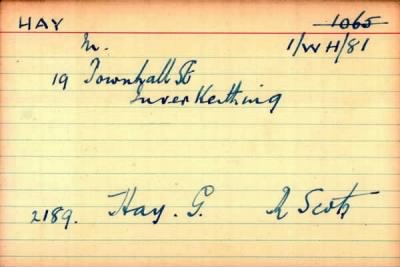 HAY 1065
M. 1/WH/81
19 Townhall St
Inverkeithing
2189. Hay. G. R Scots